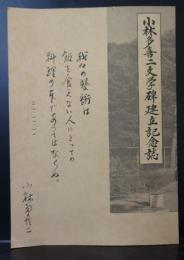 小林多喜二文学碑建立記念誌
我々の藝術は
飯を食えない人にとっての
料理の本であってはならぬ。
小林多喜二